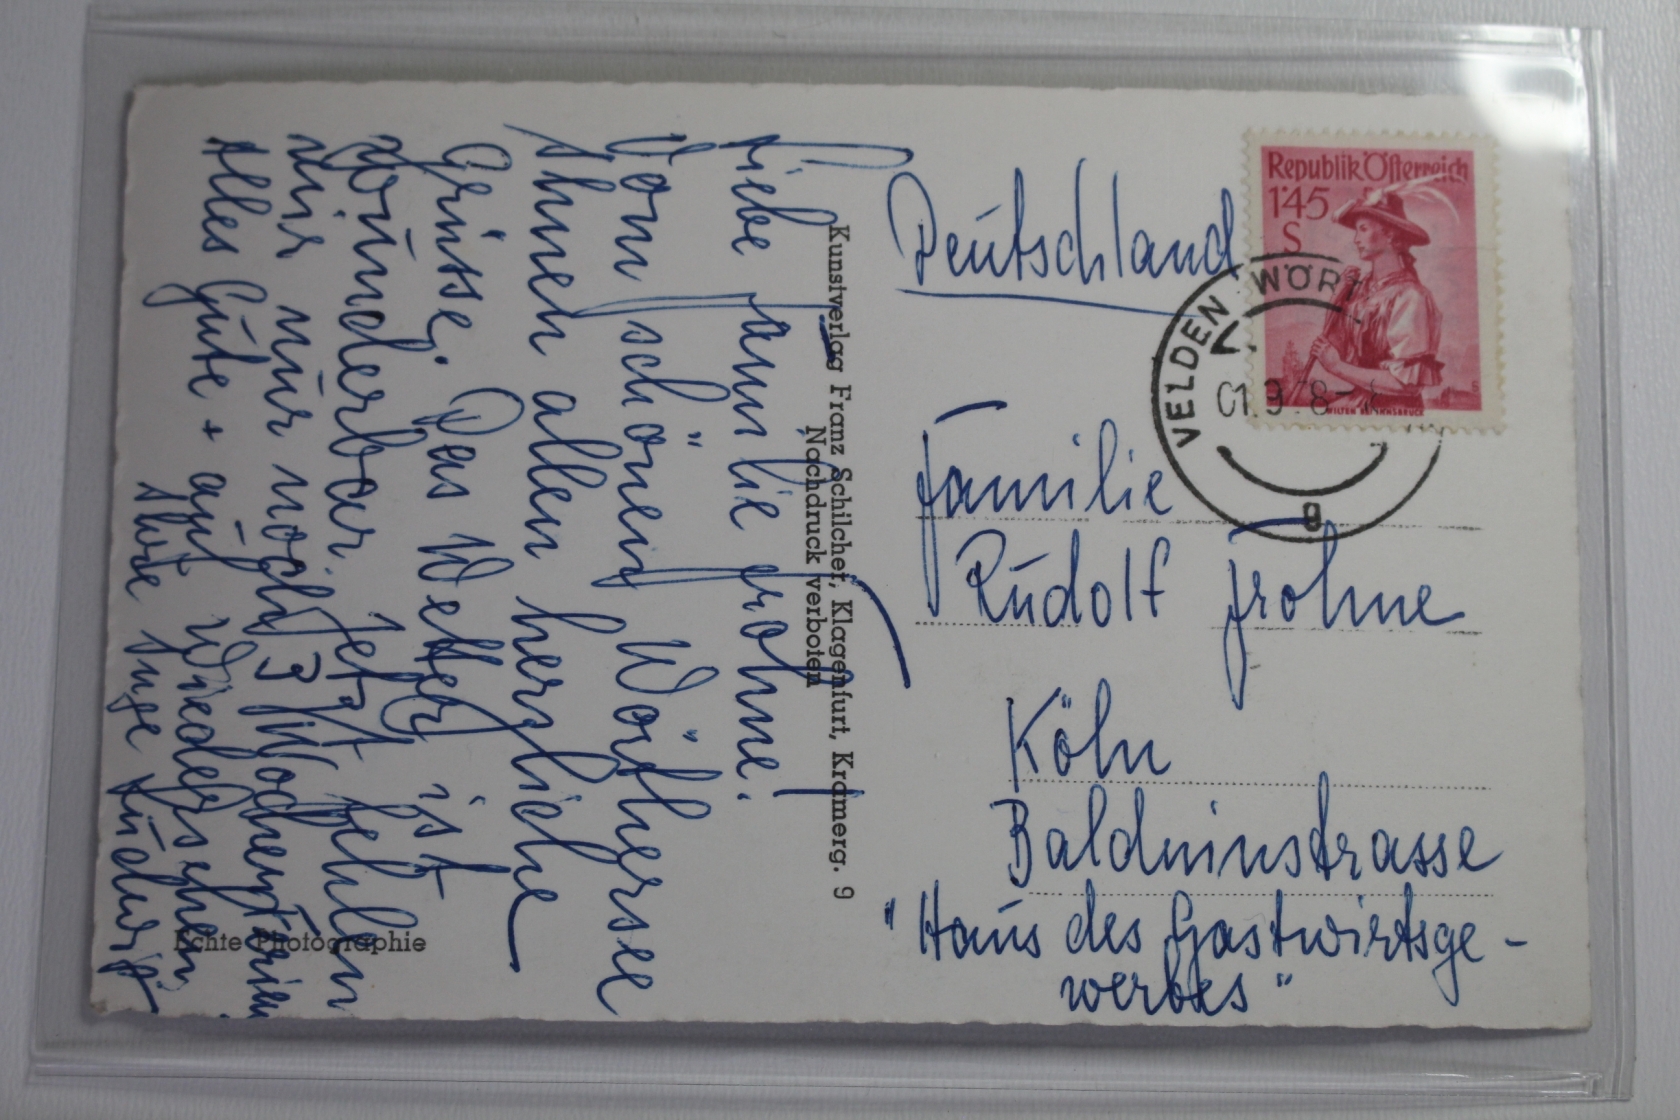 Liebe Familie Frohne!
Vom schönen Wörthersee
Ihnen allen herzliche
Grüsse. Das Wetter ist
wunderbar. Jetzt fehlen
mir nur noch 3 Wochen Ferien
Alles Gute + auf Wiedersehen
Ihre Inge Ludwig
Echte Photographie
Kunstverlag Franz Schilcher, Klagenfurt, Kramerg. 9
Nachdruck verboten
Deutschland
Republik Österreich
1'45
S
WILTEN BEI INNSBRUCK
VELDEN WÖRT
01.9 8-
g
Familie
Rudolf Frohne
Köln
Balduinstrasse
"Haus des Gastwirtsge-
werbes"